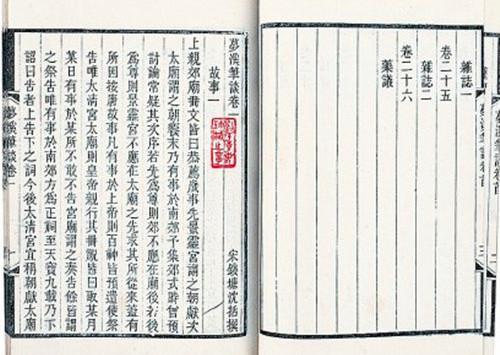 夢溪筆談卷首
三
雜誌一
卷二十五
雜誌二
卷二十六
藥議
夢溪筆談卷一
宋錢塘沈括撰
故事一
上親郊廟冊文皆曰恭薦歲事先景靈宮謂之朝獻次
太廟謂之朝饗末乃有事於南郊予集郊式時曾預
討論常疑其次序若先爲尊則郊不應在廟後若後
爲尊則景靈宮不應在太廟之先求其所從來蓋有
所因按唐故事凡有事於上帝則百神皆預遣使祭
告唯太清宮太廟則皇帝親行其冊祝皆曰取某月
某日有事於某所不敢不告宮廟謂之奏告餘皆謂
之祭告唯有事於南郊方爲正祠至天寶九載乃下
詔曰告者上告下之詞今後太清宮宜稱朝獻太廟
夢溪筆談卷一